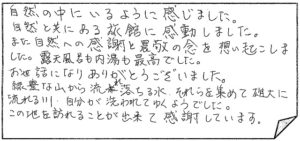 自然の中にいるように感じました。
自然と共にある旅館に感動しました。
また自然への感謝と畏敬の念を想い起こしま
した。露天風呂も内湯も最高でした。
お世話になりありがとうございました。
緑豊な山から流れ落ちる水、それらを集めて雄大に
流れる川、自分が洗われてゆくようでした。
この地を訪れることが出来て感謝しています。